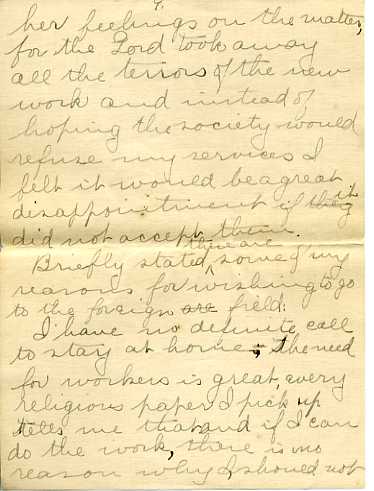 her feelings on the matter,
for the Lord took away
all the terrors of the new
work and instead of
hoping the society would
refuse my services I
felt it would be a great
disappointment if they it
did not accept them.
Briefly stated, there are some of my
reasons for wishing to go
to the foreign are field:
I have no definite call
to stay at home; the need
for workers is great, every
religious paper I pick up
tells me that and if I can
do the work, there is no
reason why I should not